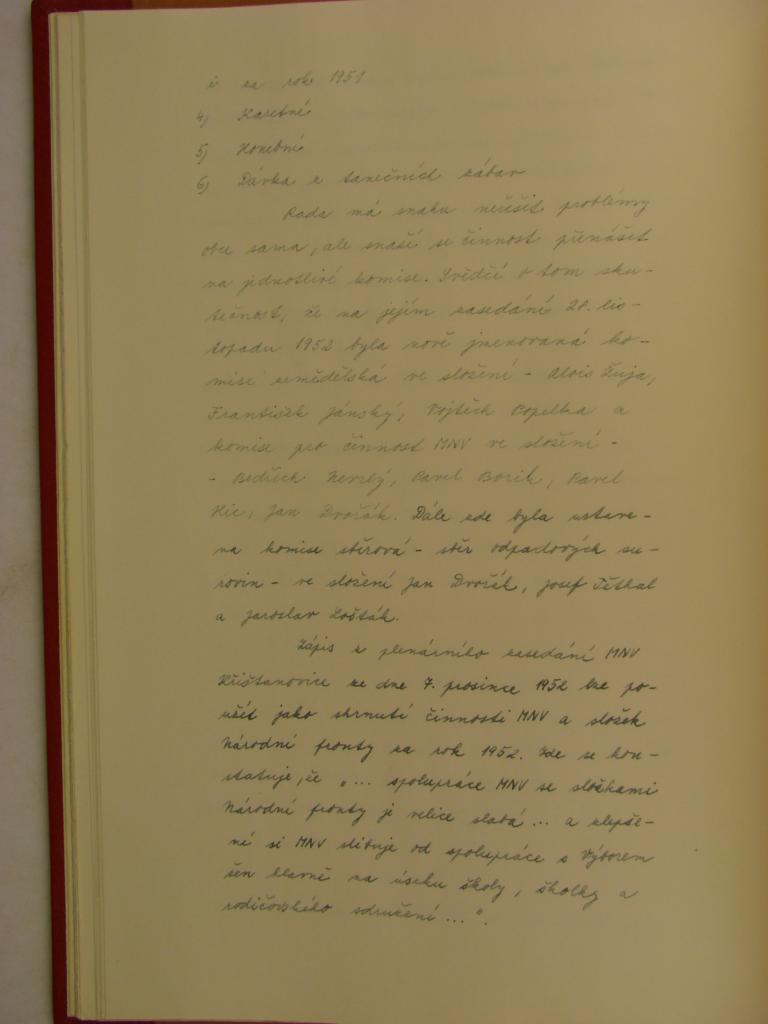 i za rok 1951
4) Karetné
5) Honební
6) Dávka z tanečních zábav
Rada má snahu neřešit problémy
obce sama, ale snaží se činnost přenášet
na jednotlivé komise. Svědčí o tom sku-
tečnost, že na jejím zasedání 20. lis-
topadu 1952 byla nově jmenovaná ko-
mise zemědělská ve složení - Alois Žuja,
František Jánský, Vojtěch Popelka a
komise pro činnost MNV ve složení -
- Bedřich Nevrlý, Pavel Borik, Pavel
Hic, Jan Dvořák. Dále zde byla ustave-
na komise sběrová - sběr odpadových su-
rovin - ve složení Jan Dvořák, Josef Těthal
a Jaroslav Lošťák.
Zápis z plenárního zasedání MNV
Křišťanovice ze dne 7. prosince 1952 lze po-
užít jako shrnutí činnosti MNV a složek
Národní fronty za rok 1952. Zde se kon-
statuje, že "... spolupráce MNV se složkami
Národní fronty je velice slabá ... a zlepše-
ní si MNV slibuje od spolupráce s Výborem
žen hlavně na úseku školy, školky a
rodičovského sdružení ...".